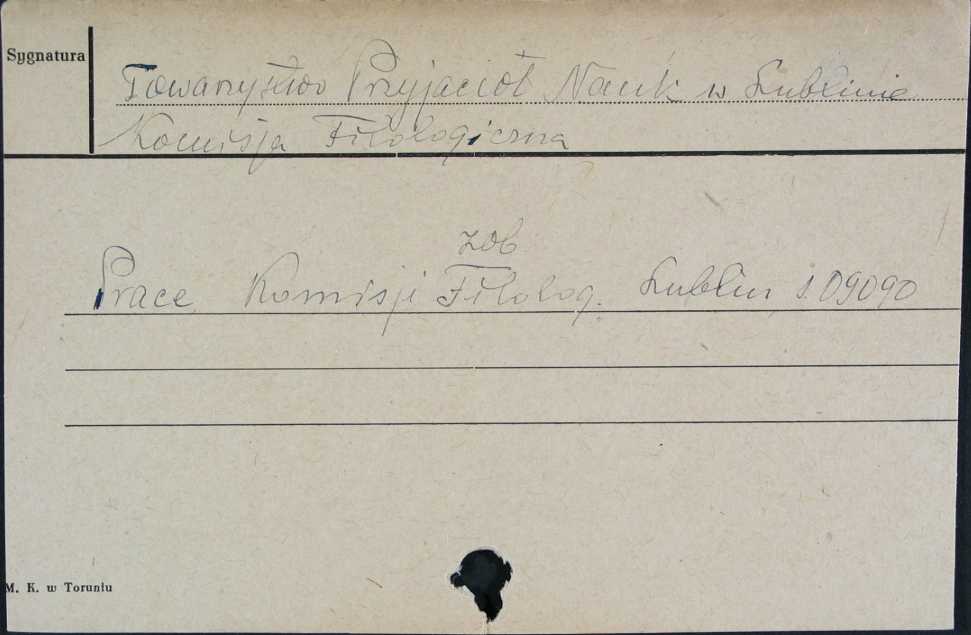 Sygnatura
Towarzystwo Przyjaciół Nauk w Lublinie
Komisja Filologiczna
zob
Prace Komisji Filolog. Lublin s. 09090
M. K. w Toruniu